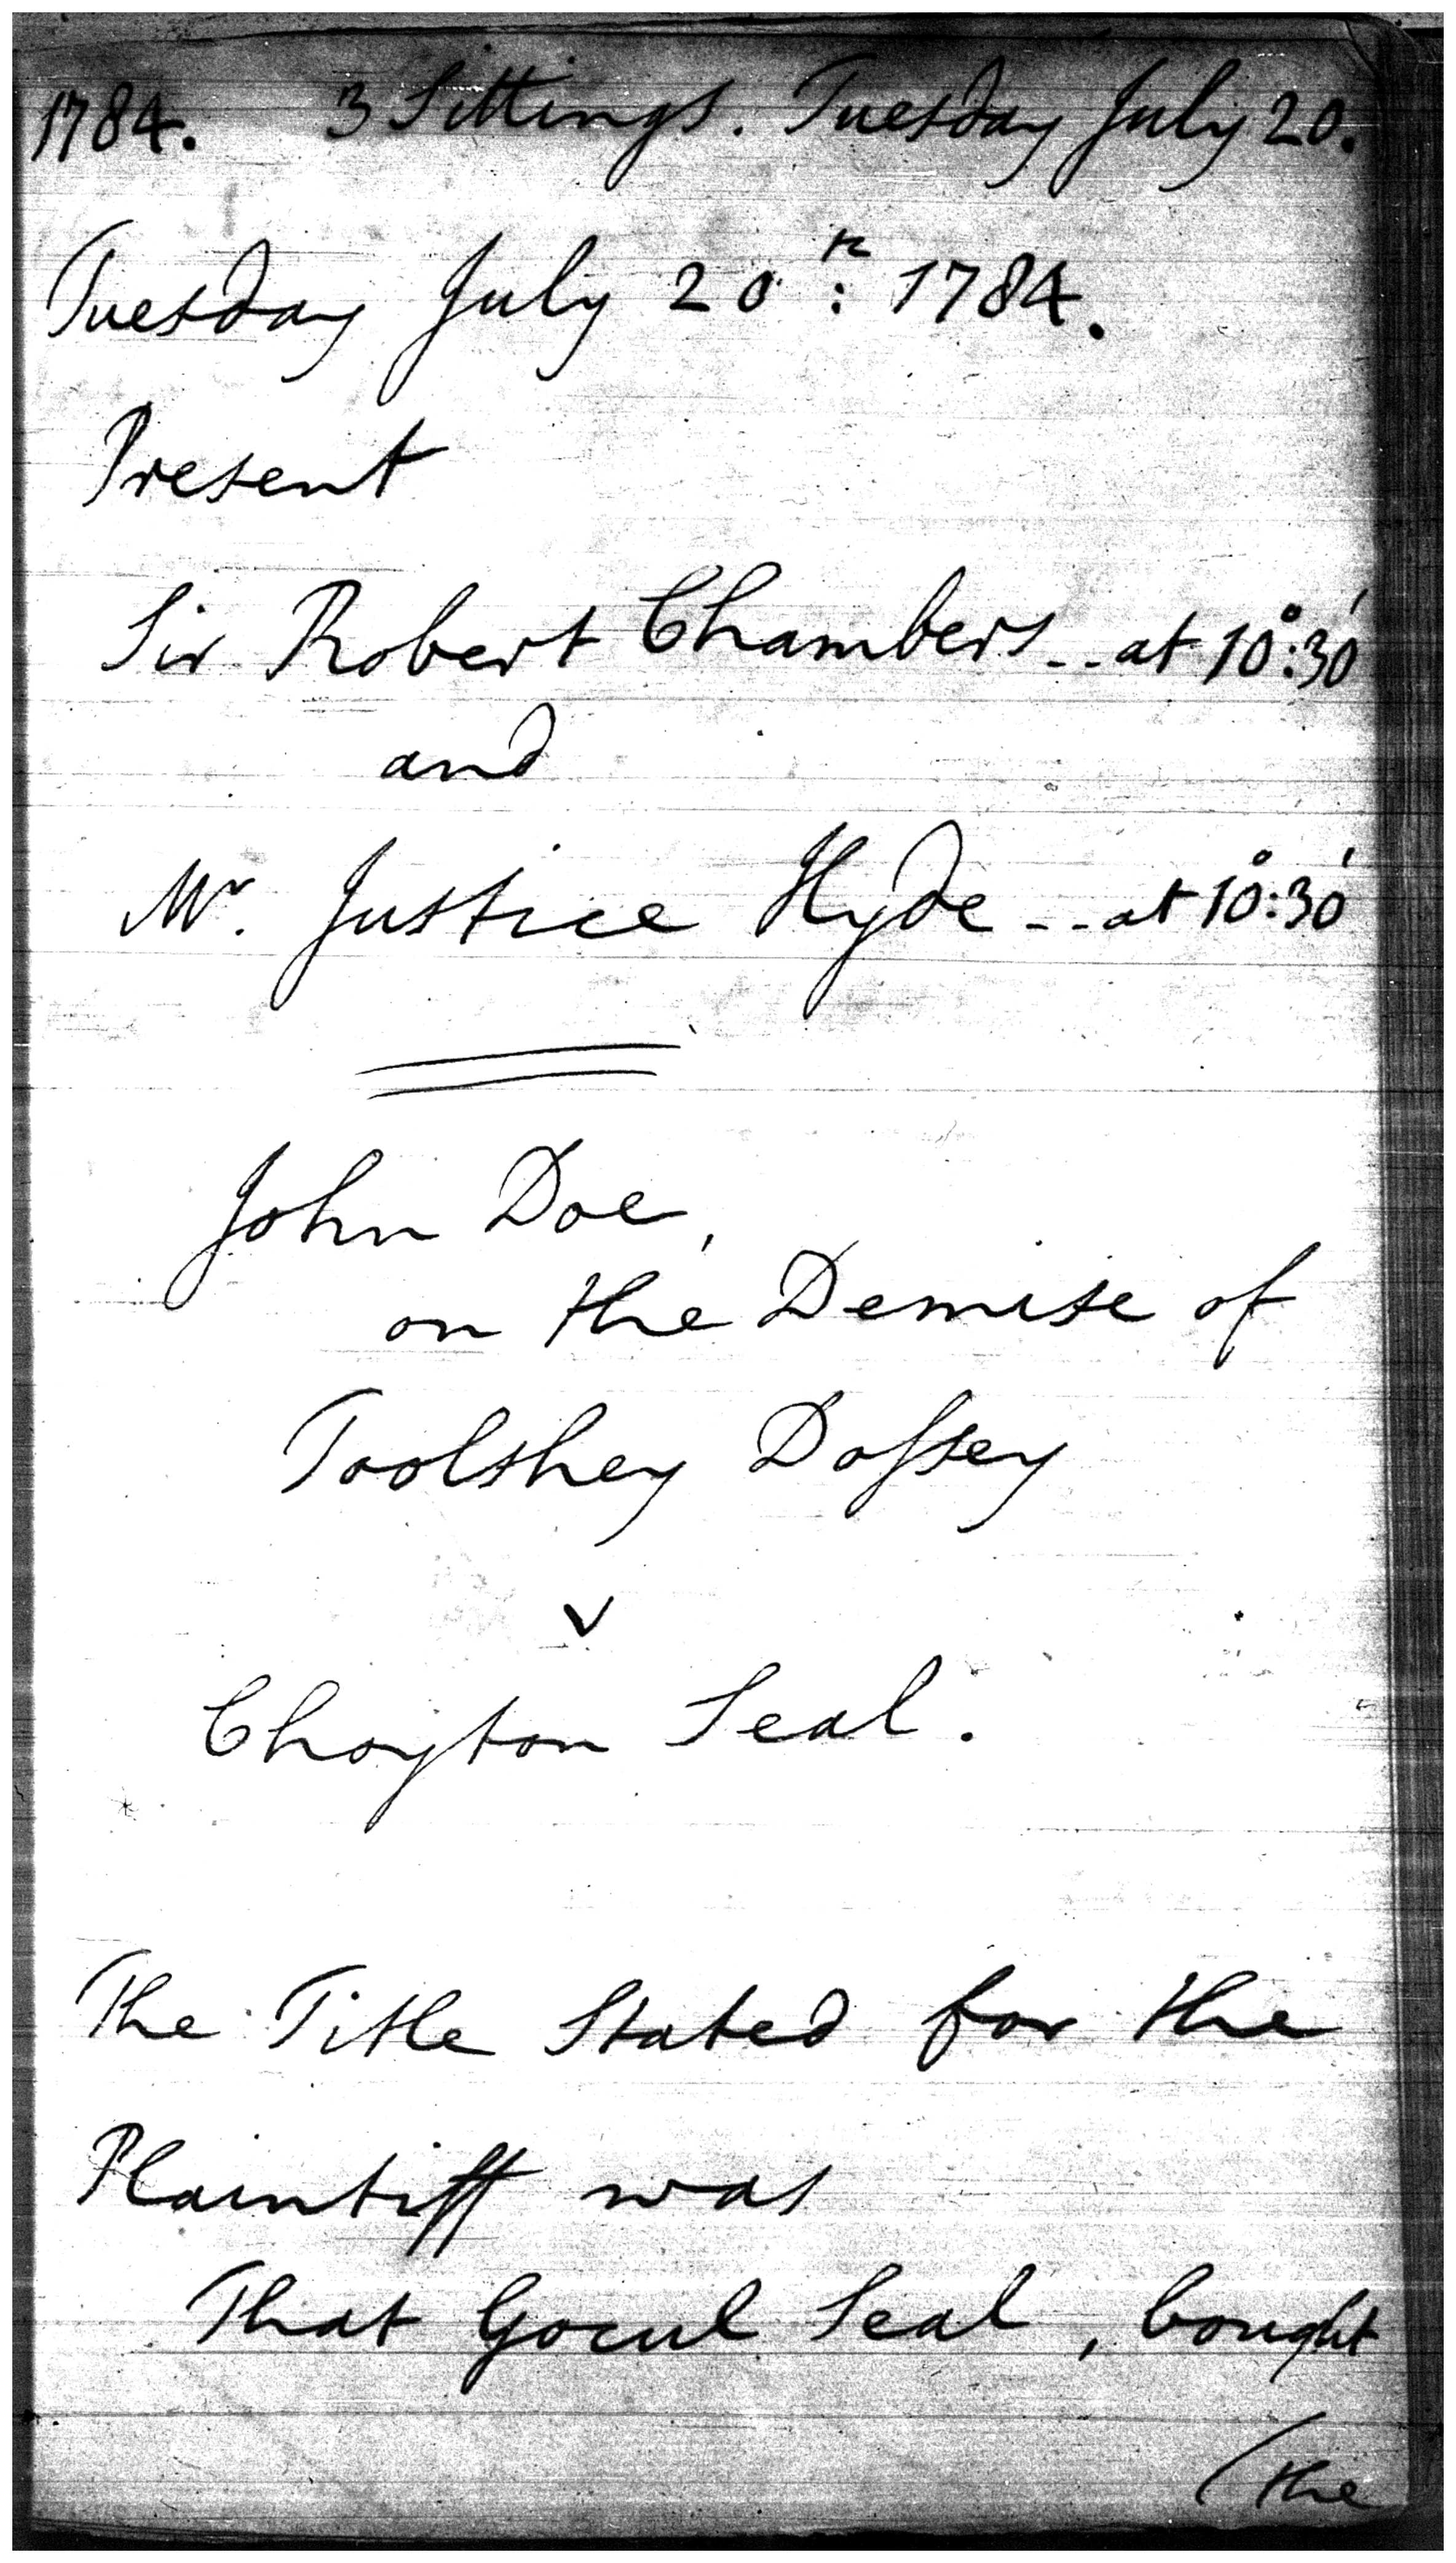 1784. 3 Sittings. Tuesday July 20.
Tuesday July 20th: 1784.
Present
Sir Robert Chambers -- at 10°:30'
and
Mr. Justice Hyde -- at 10°:30'
John Doe,
on the Demise of
Toolshey Dossey
v
Choyton Seal.
The Title Stated for the
Plaintiff was
That Gocul Seal, bought
(the